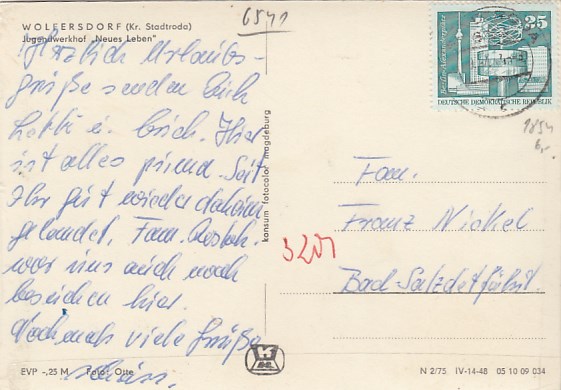 6541
WOLFERSDORF (Kr. Stadtroda)
Jugendwerkhof „Neues Leben"
Herzlich Urlaubs-
grüße senden Euch
Hier
ist alles prima. Seit
Ihr gut wieder daheim
gelandet, Fam.
war uns auch noch
besuchen hier.
Nochmals viele Grüße
konsum fotocolor magdeburg
Berlin-Alexanderplatz
25
DEUTSCHE DEMOKRATISCHE REPUBLIK
Fam.
Franz Nickel
3201
Bad-Salzdetfurth
EVP -,25 M Foto: Otte
N 2/75 IV-14-48 05 10 09 034